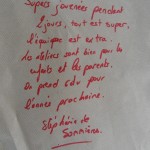 Supers journées pendant
2 jours, tout est super,
l'équipe est extra.
Les ateliers sont bien pour les
enfants et les parents.
On prend rdv pour
l'année prochaine.
Stéphanie de